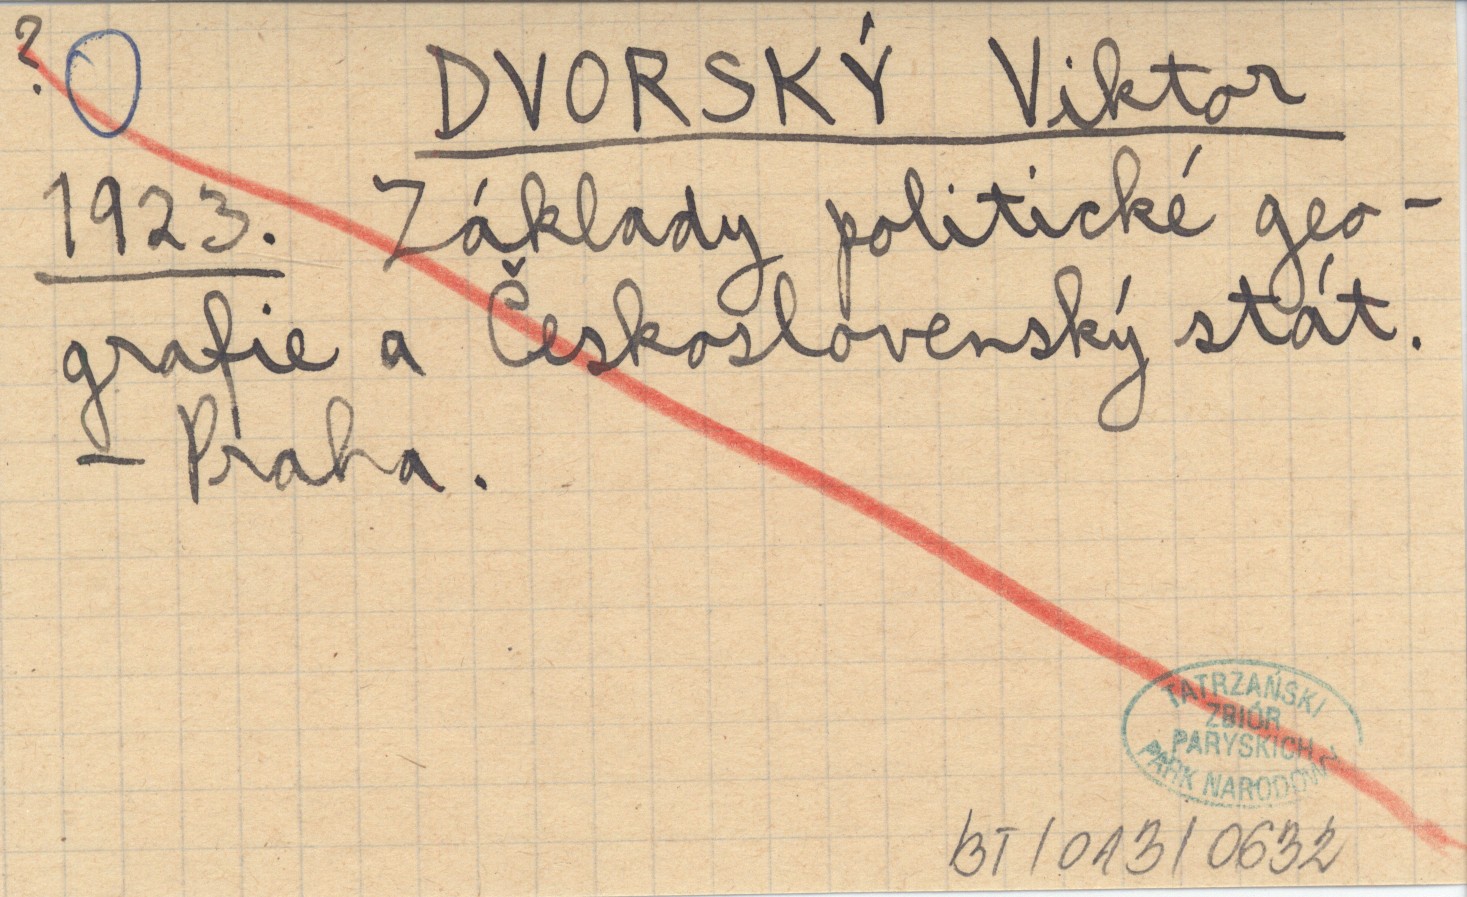 ?
DVORSKÝ Viktor
1923. Základy politické geo-
grafie a Československý stát.
– Praha.
TATRZAŃSKI
ZBIÓR
PARYSKICH
PARK NARODOWY
BT/013/0632